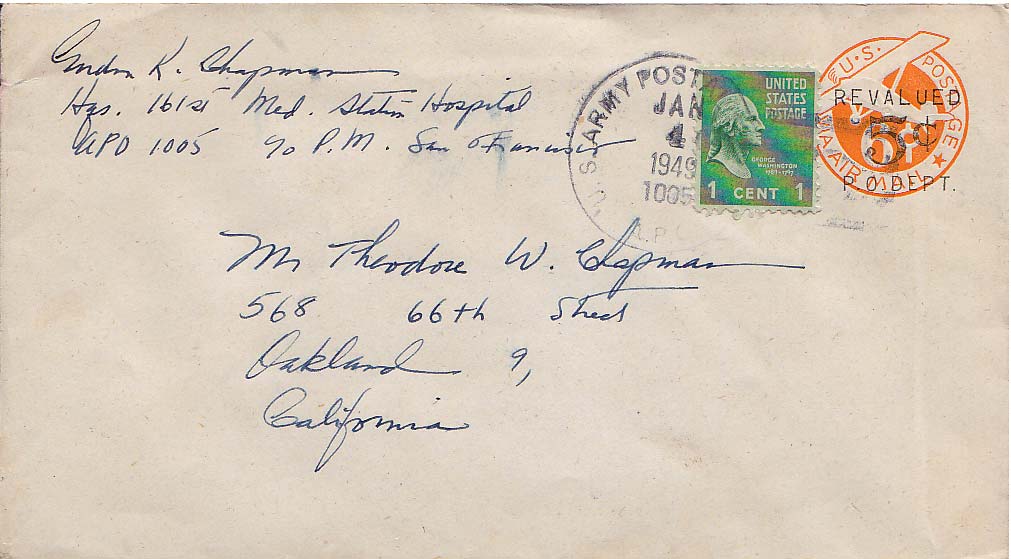 K. Chapman
Hqs. 161st Med. Station Hospital
APO 1005 c/o P.M. San Francisco
U.S. ARMY POSTAL
JAN
4
1949
1005
A.P.O.
UNITED
STATES
POSTAGE
GEORGE
WASHINGTON
1789-1797
1 CENT 1
U.S. POSTAGE
REVALUED
5¢
P.O. DEPT.
6¢
VIA AIR MAIL
Mr Theodore W. Chapman
568 66th Street
Oakland 9,
California